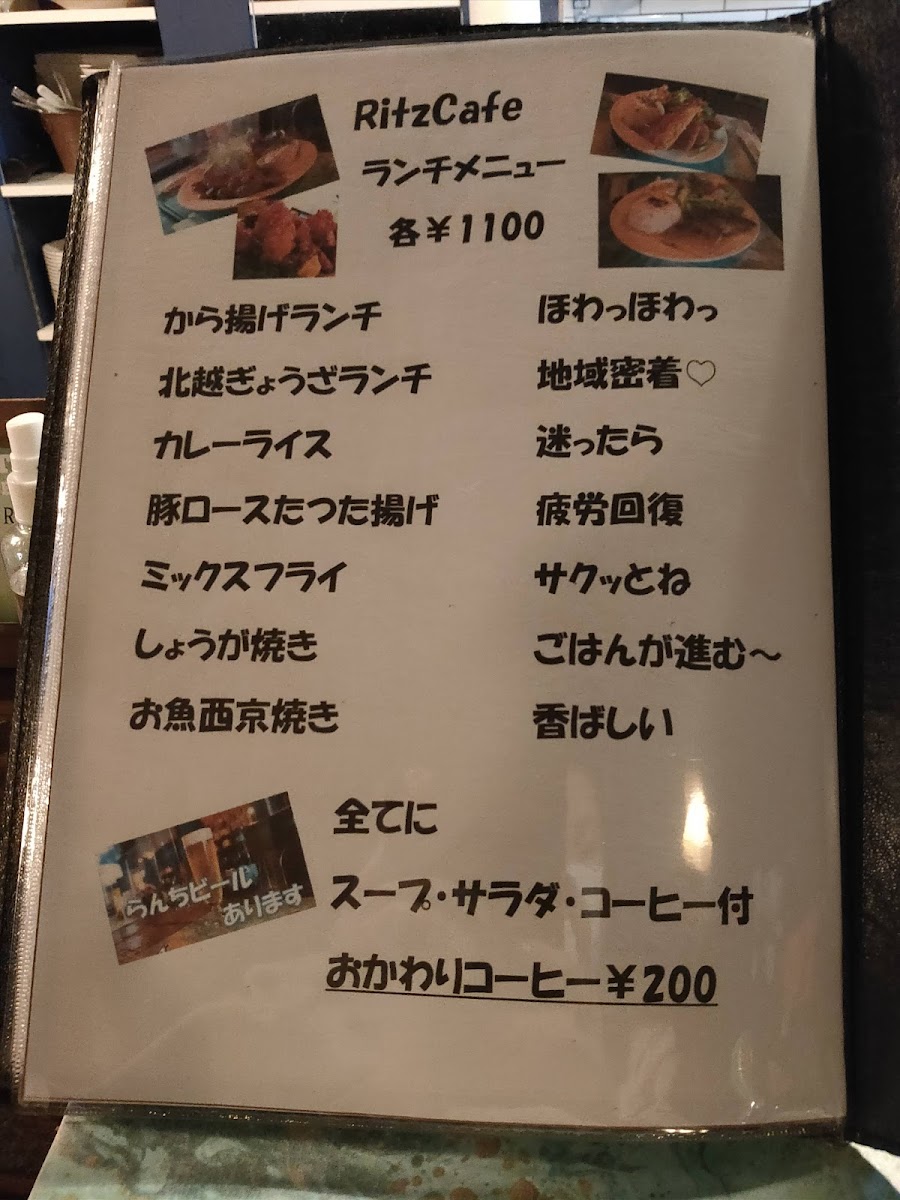 RitzCafe
ランチメニュー
各￥1100
から揚げランチ ほわっほわっ
北越ぎょうざランチ 地域密着♡
カレーライス 迷ったら
豚ロースたつた揚げ 疲労回復
ミックスフライ サクッとね
しょうが焼き ごはんが進む～
お魚西京焼き 香ばしい
全てに
スープ・サラダ・コーヒー付
おかわりコーヒー￥200
らんちビール
あります
R